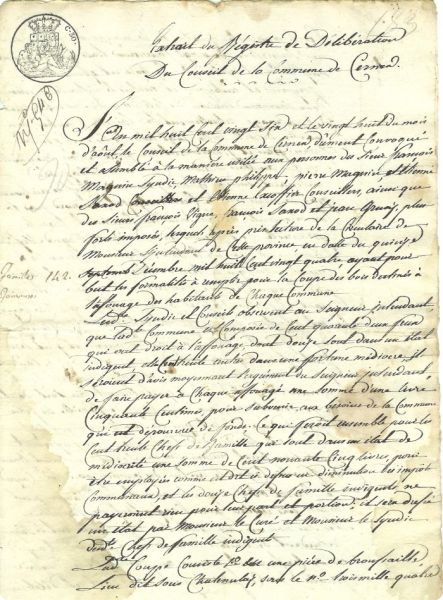 Extrait du Régistre de Déliberation
Du Conseil de la Commune de Cernex
N.° 548
L'an mil huit Cent vingt Sept et le vingt du mois
d'août, le Conseil de la commune de Cernex dument Convoqué
et assemblé à la maniere usitée aux personnes des Sieurs François
Magnin Syndic, Mathieu philippe, pierre Marguier, et Etienne
Conseillers, ainsi que
des Sieurs françois Vigne, françois et jean plus
forts imposés, lesquels après lecture de la Circulaire de
Monsieur L'intendant de cette province en datte du quinze
Décembre mil huit Cent vingt quatre ayant pour
but les formalités à remplir pour la Coupe des bois destinés à
l'affouage des habitants de Chaque Commune
Familles 142.
Syndic et Conseils observent au Seigneur intendant
que lad.te Commune est Composée de Cent quarante deux feux
qui ont droit à l'affouage, dont douze sont dans un état
indigent, et Cent trente dans une fortune médiocre, il
Seroient d'avis moyennant l'agrément du Seigneur intendant
de faire payer à Chaque affouagé une somme d'une Livre
Cinquante Centimes, pour Subvenir aux besoins de la Commune
qui est dépourvue de fonds, Ce qui feroit ensemble pour les
Cent trente Chefs de famille qui sont dans un état de
médiocrité une somme de Cent nonante Cinq livres, pour
être employée comme est dit en diminution des impôts
Communaux, et les douze Chefs de famille indigent ne
payeroient rien pour leur part et portion, il sera dressé
un état par Monsieur le Curé et Monsieur le Syndic
desd.ts Chefs de famille indigents
Lad.te Coupe est une pièce de broussaille
Lieu dit sous sous le n.° trois mille quatre